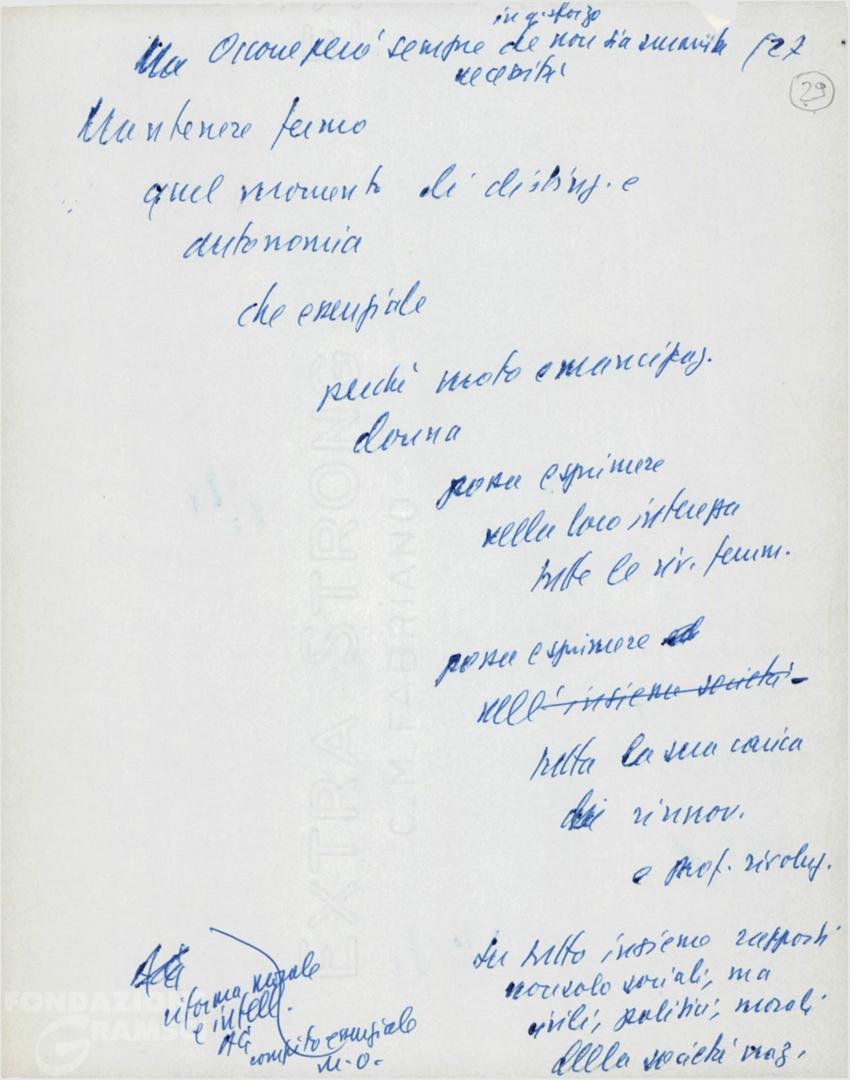 in q. sforzo
Ma Occorre però sempre che non sia smarrita f27
necessità
29
Mantenere fermo
quel momento di disting. e
autonomia
che essenziale
perché moto emancipaz.
donna
possa esprimere
nella loro interezza
tutte le riv. femm.
possa esprimere
nell'insieme società
tutta la sua carica
di rinnov.
e prof. rivoluz.
su tutto insieme rapporti
non solo sociali, ma
civili, politici, morali
della società naz.
riforma morale
e intell.
AG
compito essenziale
M.O.
EXTRA STRONG
C.M. FABRIANO
FONDAZIONE
GRAMSCI